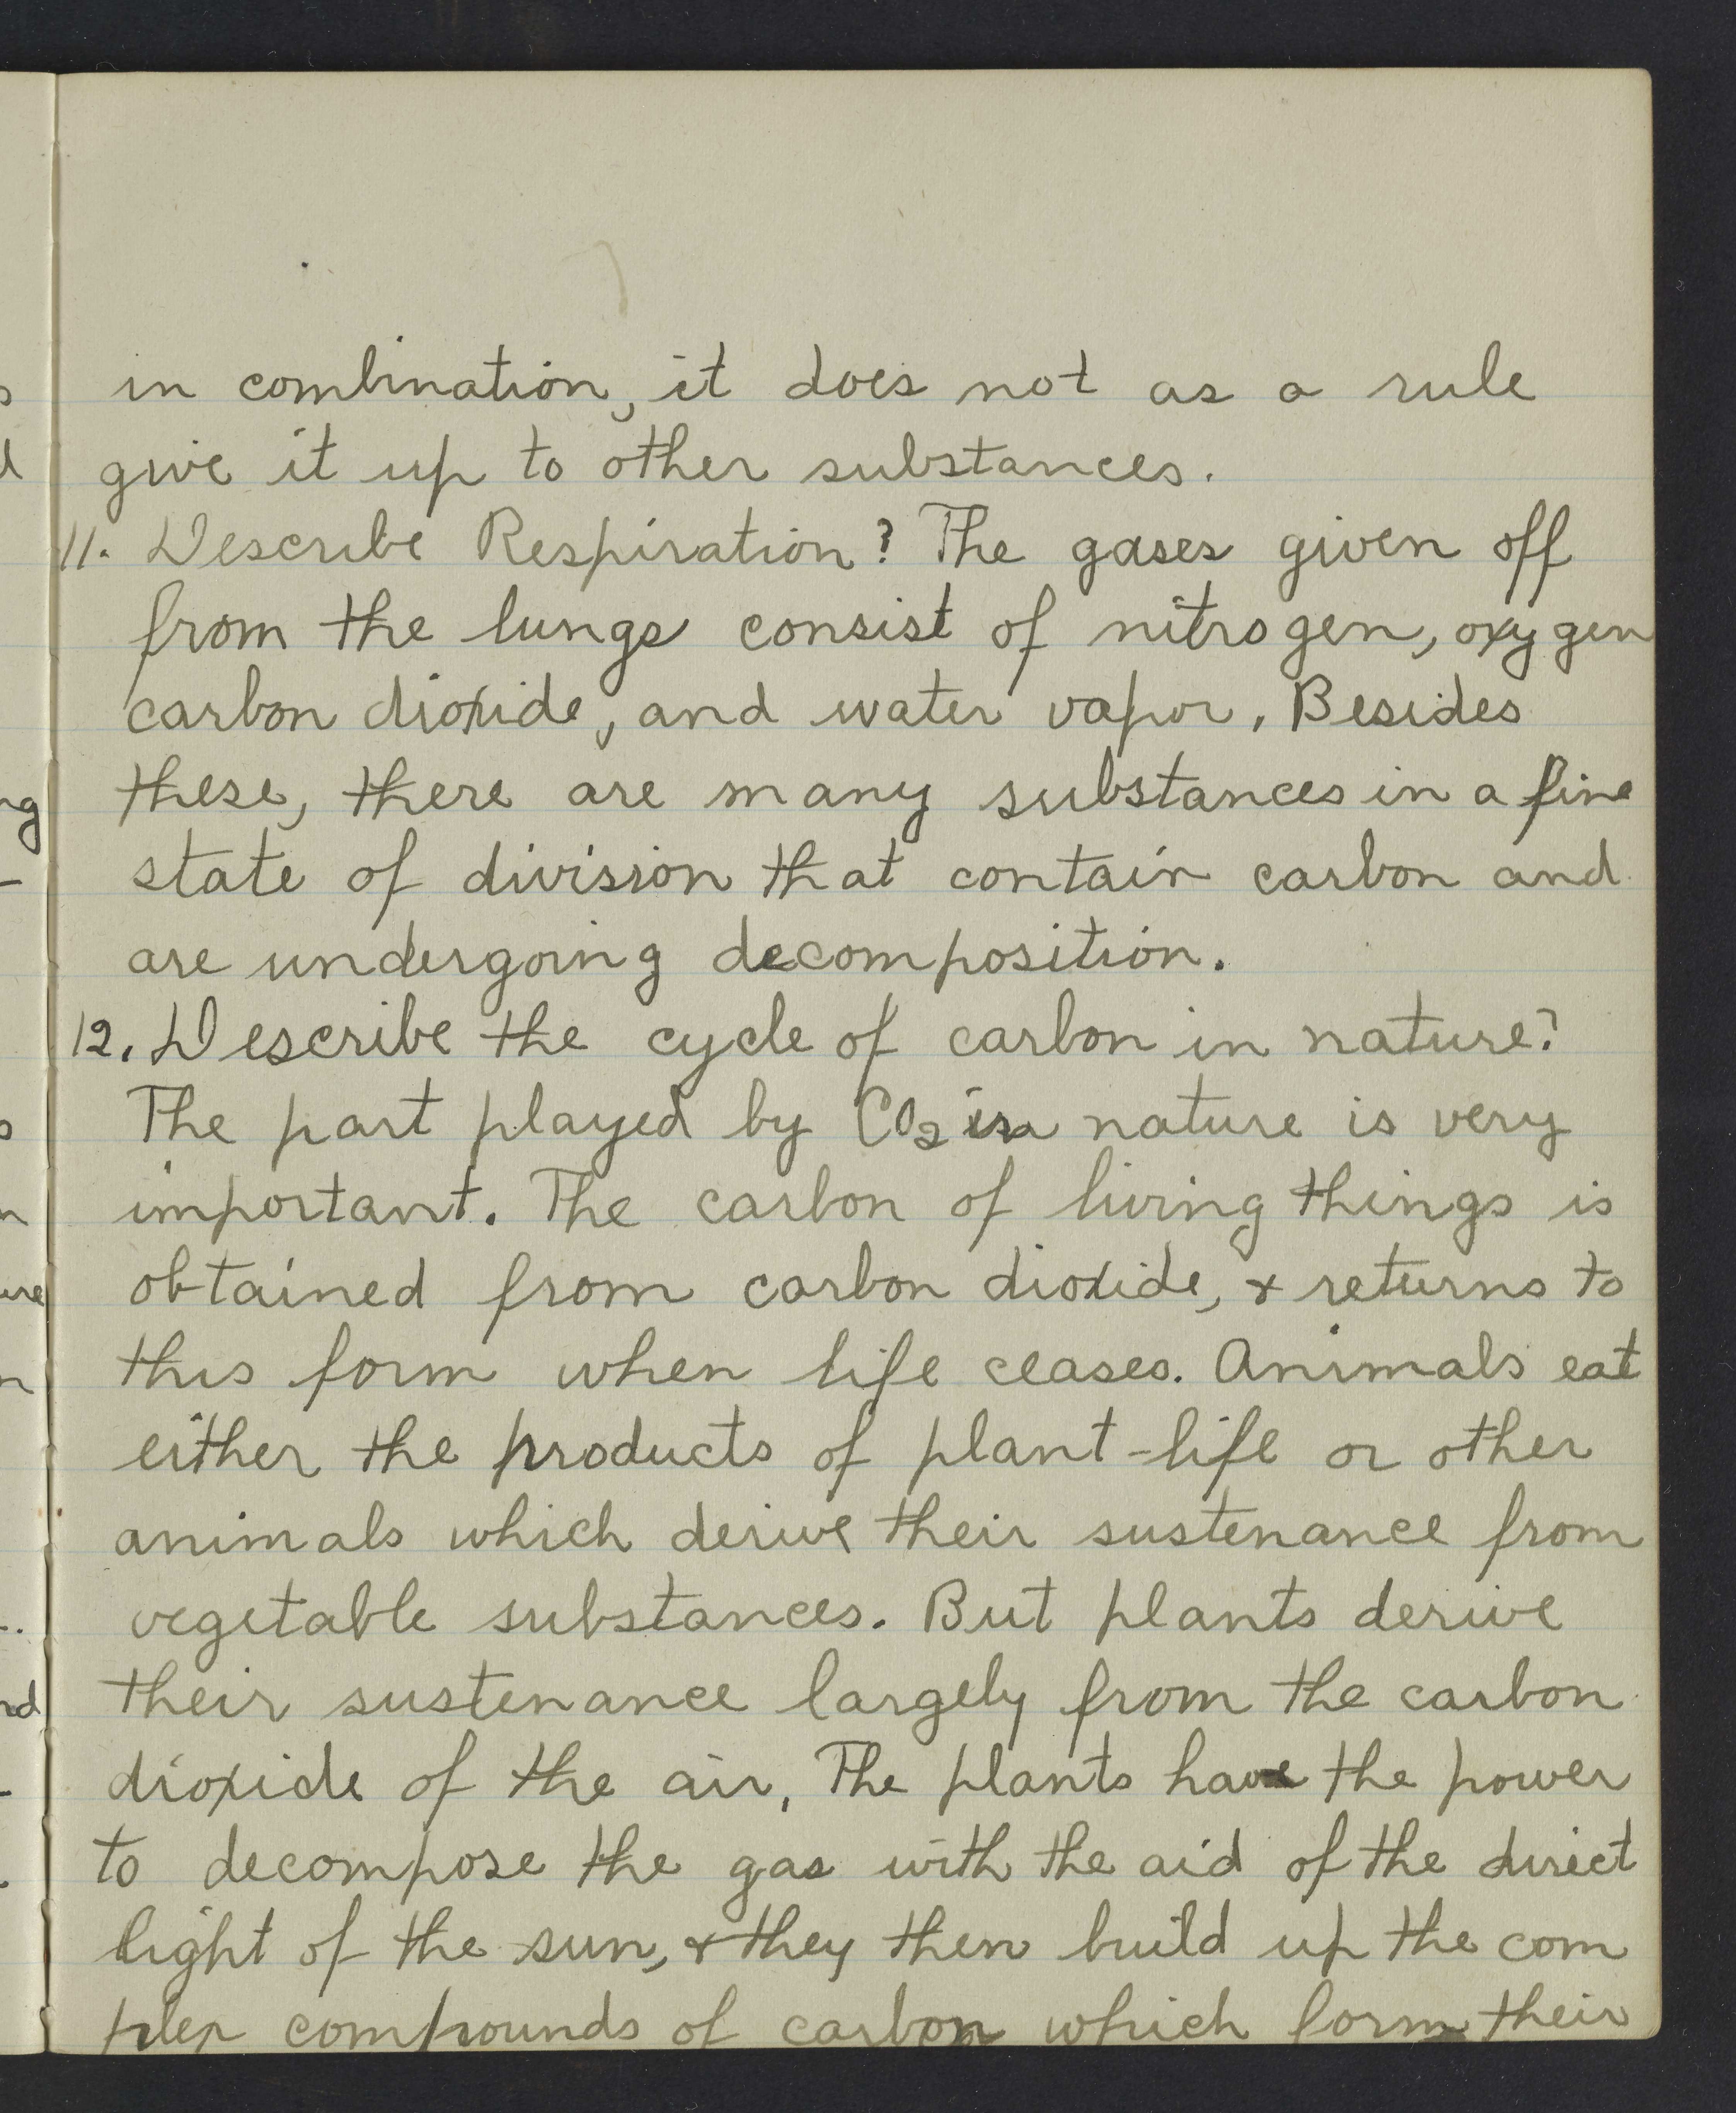 in combination, it does not as a rule
give it up to other substances.
11. Describe Respiration? The gases given off
from the lungs consist of nitrogen, oxygen
carbon dioxide, and water vapor. Besides
these, there are many substances in a fine
state of division that contain carbon and
are undergoing decomposition.
12. Describe the cycle of carbon in nature?
The part played by CO2 in nature is very
important. The carbon of living things is
obtained from carbon dioxide, & returns to
this form when life ceases. Animals eat
either the products of plant-life or other
animals which derive their sustenance from
vegetable substances. But plants derive
their sustenance largely from the carbon
dioxide of the air, The plants have the power
to decompose the gas with the aid of the direct
light of the sun, & they then build up the com
plex compounds of carbon which form their